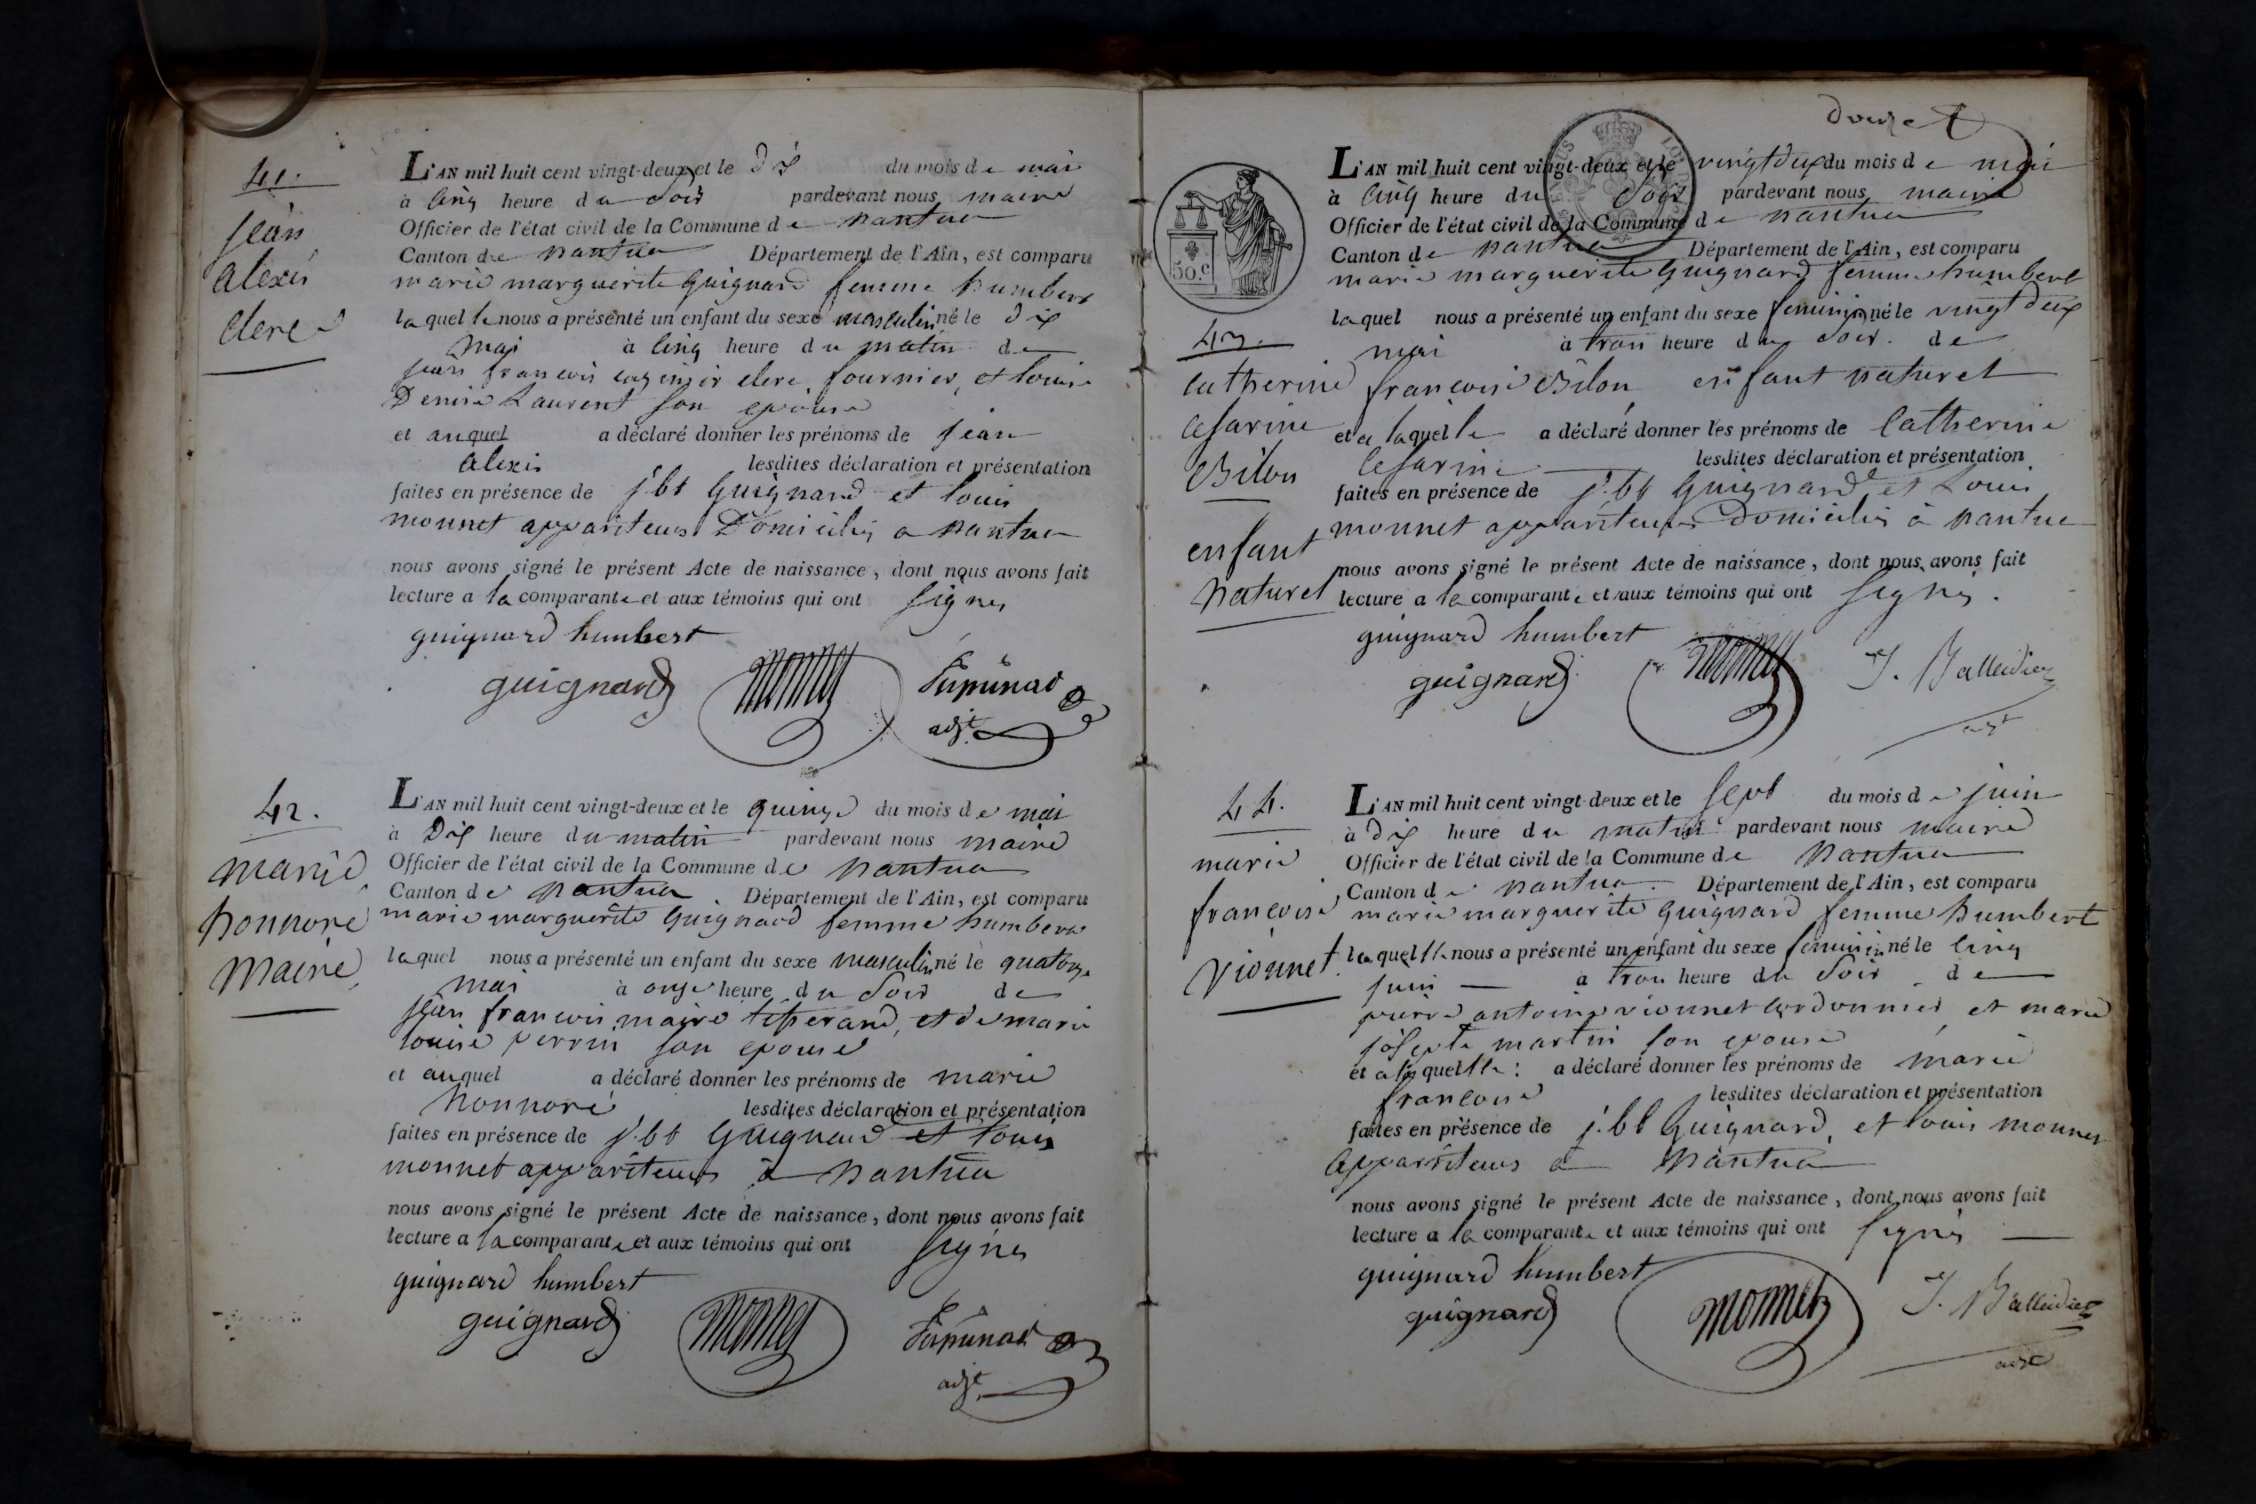 41.
jean
alexis
clerc
L'AN mil huit cent vingt-deux et le dix du mois de mai
à cinq heure du soir pardevant nous maire
Officier de l'état civil de la Commune de nantua
Canton de nantua Département de l'Ain, est comparu
marie marguerite guignard femme humbert
laquelle nous a présenté un enfant du sexe masculin né le dix
mai à cinq heure du matin de
jean francois clerc, fournier, et louise
Denise Laurent son epouse
et auquel a déclaré donner les prénoms de jean
alexis lesdites déclaration et présentation
faites en présence de j. bt guignard et louis
monnet appariteurs Domiciliés a nantua
nous avons signé le présent Acte de naissance, dont nous avons fait
lecture a la comparante et aux témoins qui ont signés
guignard humbert
guignard monnet
adjt
42.
marie
honnoré
maire
L'AN mil huit cent vingt-deux et le quinze du mois de mai
à Dix heure du matin pardevant nous maire
Officier de l'état civil de la Commune de nantua
Canton de nantua Département de l'Ain, est comparu
marie marguerite guignard femme humbert
laquel nous a présenté un enfant du sexe masculin né le quatorze
mai à onze heure du soir de
jean francois maire tisserand, et de marie
louise perrin son epouse
et auquel a déclaré donner les prénoms de marie
honnoré lesdites déclaration et présentation
faites en présence de j. bt guignard et louis
monnet appariteurs à nantua
nous avons signé le présent Acte de naissance, dont nous avons fait
lecture a la comparante et aux témoins qui ont signés
guignard humbert
guignard monnet
adjt
douze
50.c
43.
catherine
cesarine
Bilon
enfant
naturel
L'AN mil huit cent vingt-deux et le vingt deux du mois de mai
à cinq heure du soir pardevant nous maire
Officier de l'état civil de la Commune de nantua
Canton de nantua Département de l'Ain, est comparu
marie marguerite guignard femme humbert
laquel nous a présenté un enfant du sexe feminin né le vingt deux
mai à trois heure du soir. de
françoise Bilon enfant naturel
et a laquelle a déclaré donner les prénoms de Catherine
Cesarine lesdites déclaration et présentation
faites en présence de j. bt guignard et Louis
monnet appariteurs Domiciliés à nantua
nous avons signé le présent Acte de naissance, dont nous avons fait
lecture a la comparante et aux témoins qui ont signés.
guignard humbert
guignard monnet J. Balleidier
adjt
44.
marie
françoise
vionnet
L'AN mil huit cent vingt-deux et le sept du mois de juin
à dix heure du matin pardevant nous maire
Officier de l'état civil de la Commune de nantua
Canton de nantua. Département de l'Ain, est comparu
marie marguerite guignard femme humbert
laquelle nous a présenté un enfant du sexe feminin né le cinq
juin à trois heure du soir de
pierre antoine vionnet cordonnier et marie
josepte martin son epouse
et a laquelle : a déclaré donner les prénoms de marie
francoise lesdites déclaration et présentation
faites en présence de j. bt guignard, et louis monnet
appariteurs à nantua
nous avons signé le présent Acte de naissance, dont nous avons fait
lecture a la comparante et aux témoins qui ont signés
guignard humbert
guignard monnet J. Balleidier
adjt